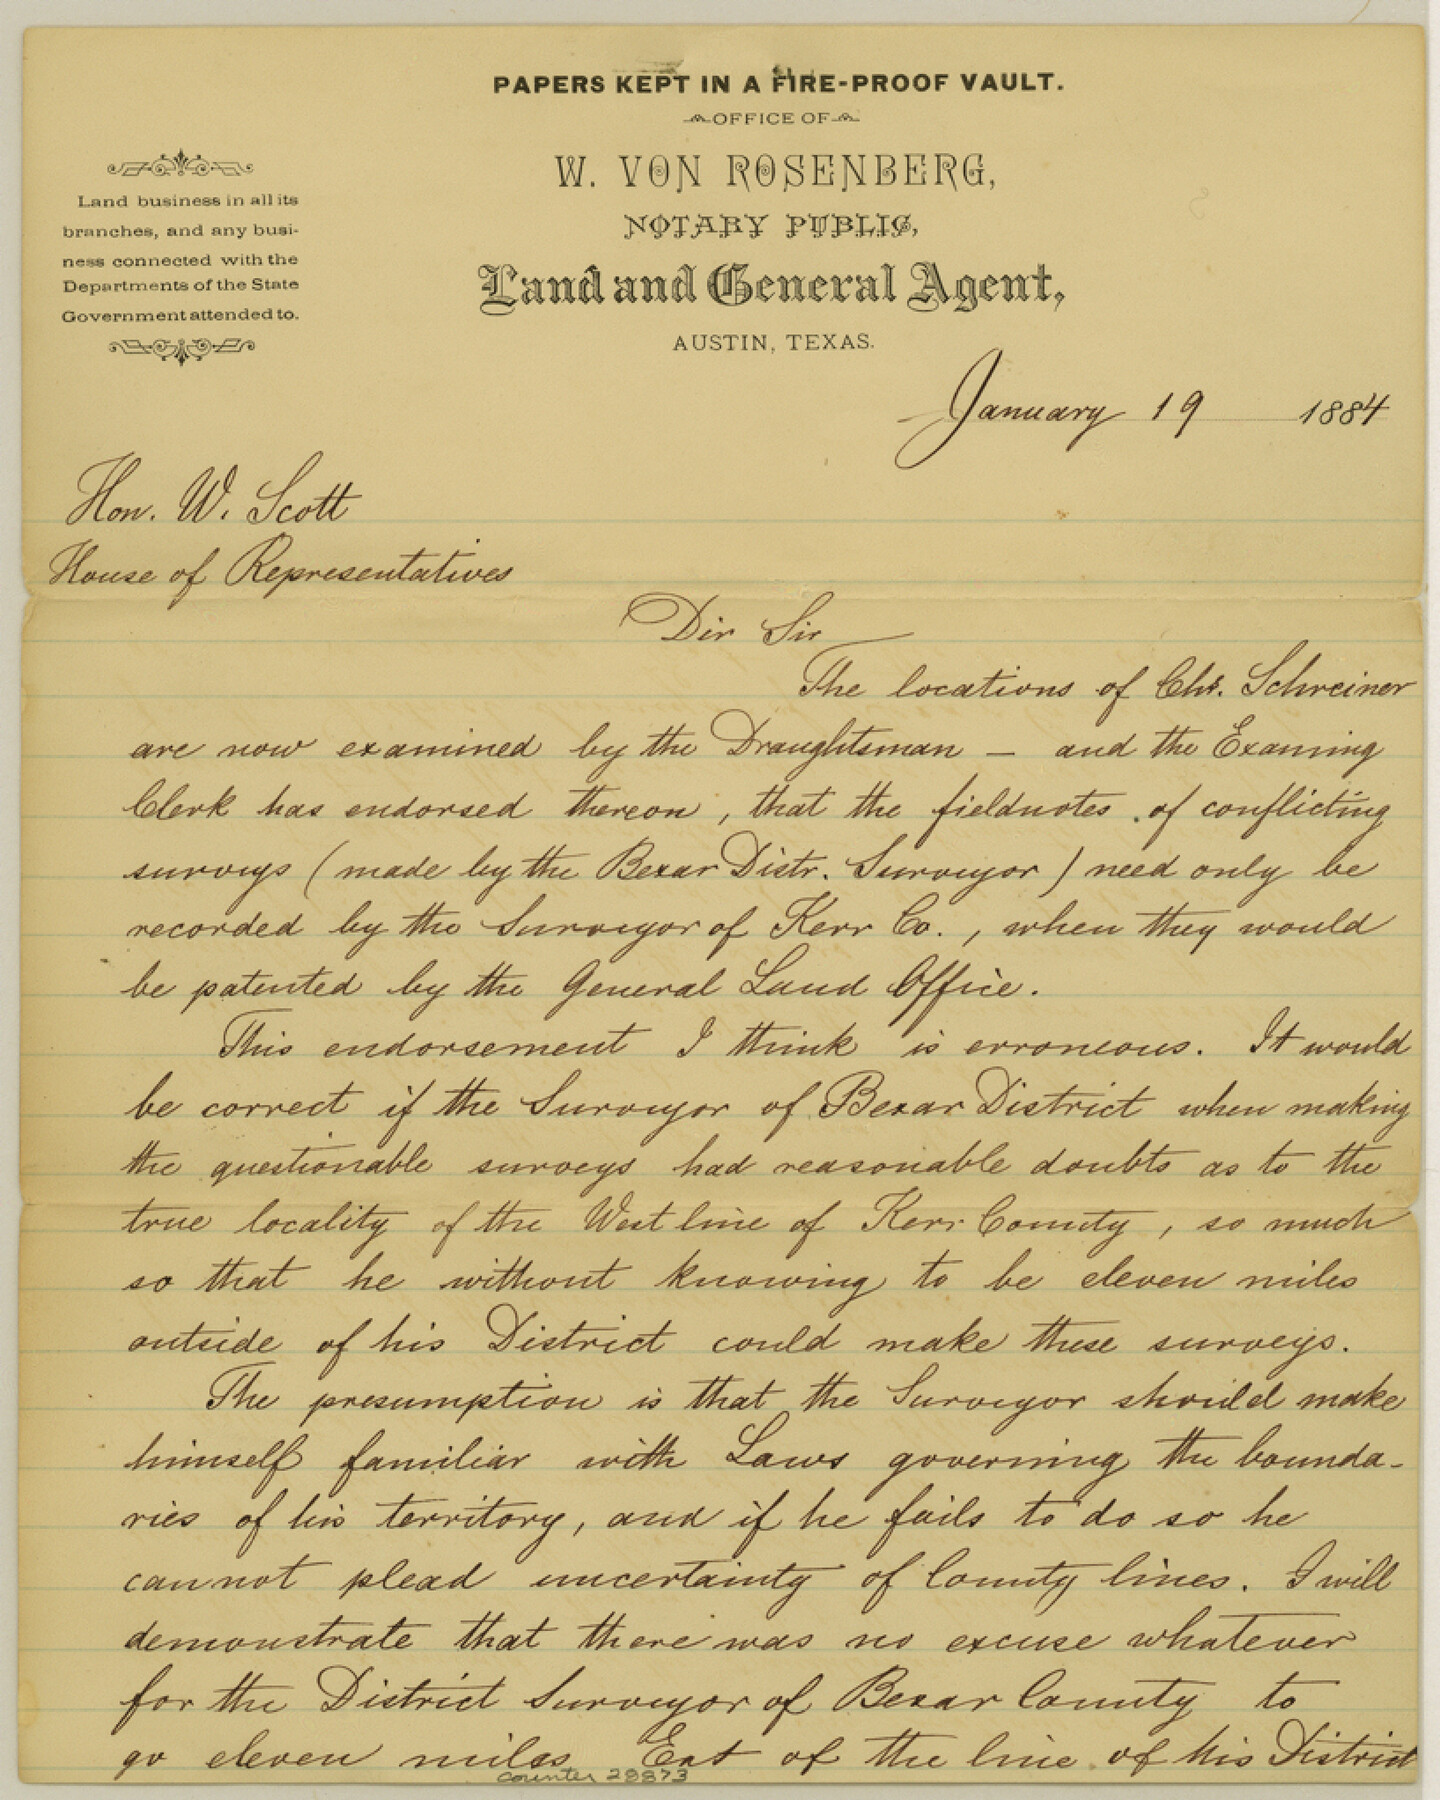 PAPERS KEPT IN A FIRE-PROOF VAULT.
OFFICE OF
W. VON ROSENBERG,
NOTARY PUBLIC,
Land and General Agent,
AUSTIN, TEXAS.
Land business in all its
branches, and any busi-
ness connected with the
Departments of the State
Government attended to.
January 19 1884
Hon. W. Scott
House of Representatives
Dir Sir
The locations of Chs. Schreiner
are now examined by the Draughtsman — and the Examing
Clerk has endorsed thereon, that the fieldnotes of conflicting
surveys (made by the Bexar Distr. Surveyor) need only be
recorded by the Surveyor of Kerr Co., when they would
be patented by the General Land Office.
This endorsement I think is erroneous. It would
be correct if the Surveyor of Bexar District when making
the questionable surveys had reasonable doubts as to the
true locality of the West line of Kerr County, so much
so that he without knowing to be eleven miles
outside of his District could make these surveys.
The presumption is that the Surveyor should make
himself familiar with Laws governing the bounda-
ries of his territory, and if he fails to do so he
cannot plead uncertainty of County lines. I will
demonstrate that there was no excuse whatever
for the District Surveyor of Bexar County to
go eleven miles East of the line of his District
counter 28873